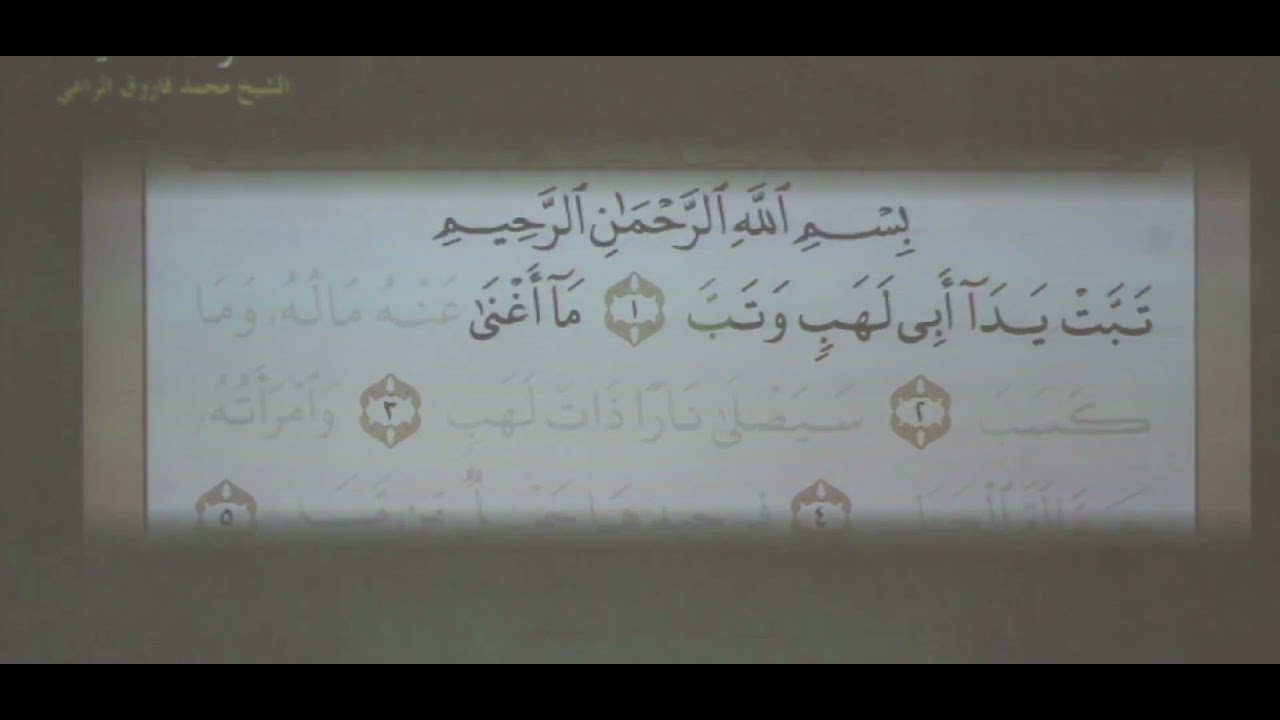 الشيخ محمد فاروق الراعي
بِسْمِ ٱللَّهِ ٱلرَّحْمَٰنِ ٱلرَّحِيمِ
تَبَّتْ يَدَآ أَبِى لَهَبٍ وَتَبَّ ١ مَآ أَغْنَىٰ عَنْهُ مَالُهُۥ وَمَا
كَسَبَ ٢ سَيَصْلَىٰ نَارًا ذَاتَ لَهَبٍ ٣ وَٱمْرَأَتُهُۥ
حَمَّالَةَ ٱلْحَطَبِ ٤ فِى جِيدِهَا حَبْلٌ مِّن مَّسَدٍ ٥